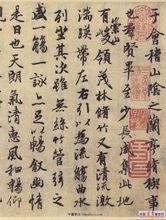 會稽山陰之蘭亭脩稧事
也群賢畢至少長咸集此地
有崇山峻領茂林脩竹又有清流激
湍暎帶左右引以為流觴曲水
列坐其次雖無絲竹管弦之
盛一觴一詠亦足以暢敘幽情
是日也天朗氣清惠風和暢仰